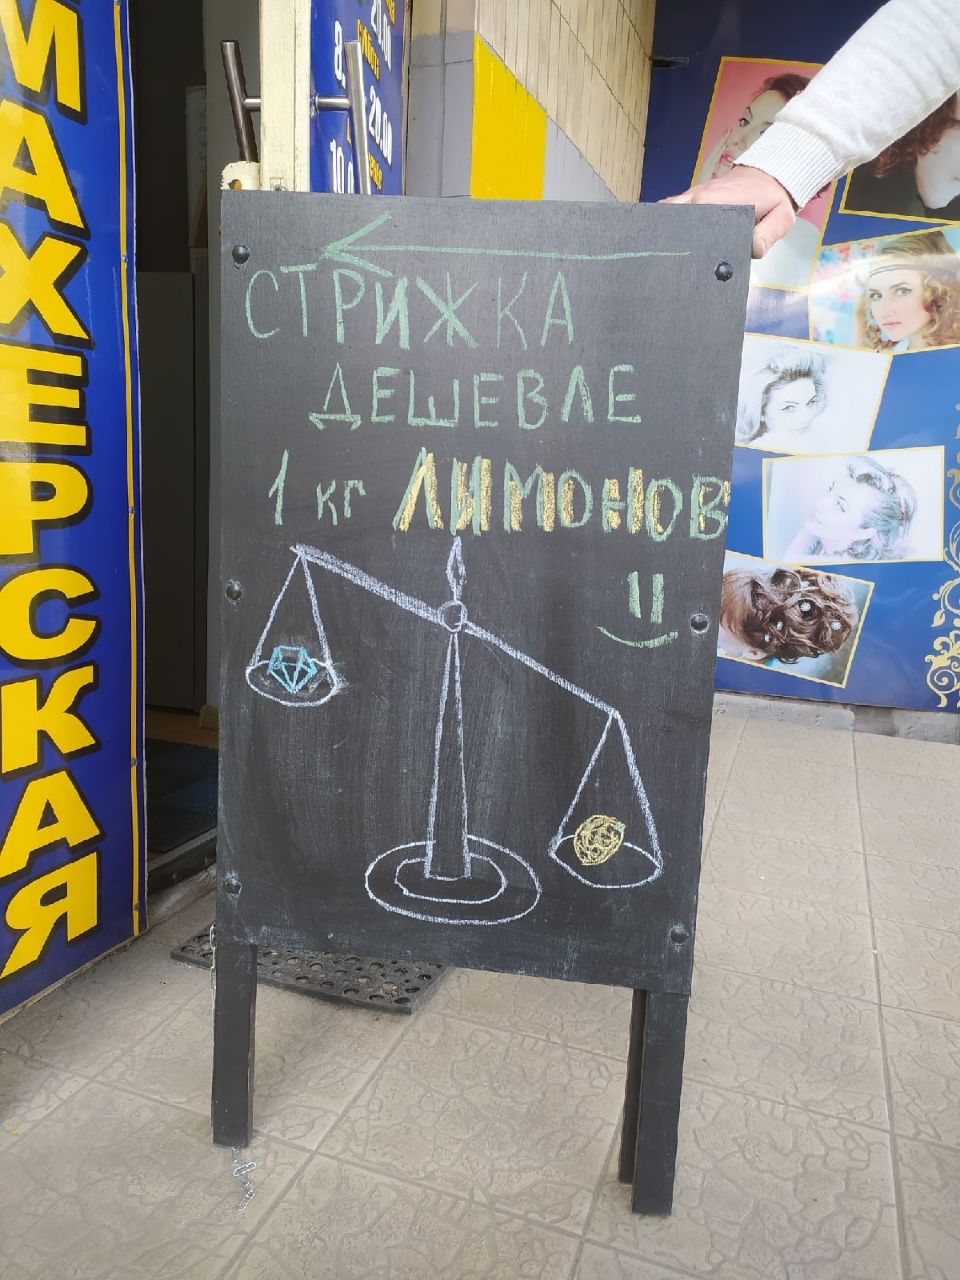 МАХЕРСКАЯ
20.00
СУББОТА
8.
20.00
10.0
СТРИЖКА
ДЕШЕВЛЕ
1 кг ЛИМОНОВ